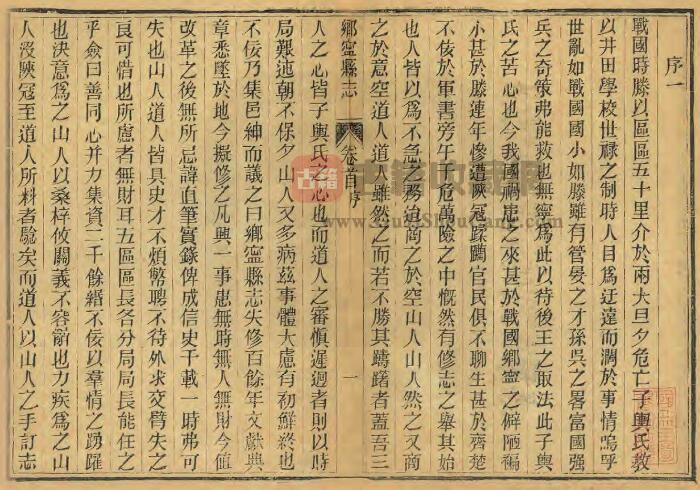 序一
戰國時滕以區區五十里介於兩大旦夕危亡子輿氏敎
以井田學校世祿之制時人目爲迂遠而濶於事情嗚乎
世亂如戰國國小如滕雖有管晏之才孫吳之畧富國強
兵之奇策弗能救也無寧爲此以待後王之取法此子輿
氏之苦心也今我國禍患之來甚於戰國鄕寧之僻陋褊
小甚於滕連年慘遭陜寇蹂躪官民俱不聊生甚於齊楚
不佞於軍書旁午千危萬險之中慨然有修志之舉其始
也人皆以爲不急之務迨商之於空山人山人然之又商
之於意空道人道人雖然之而若不勝其躊躇者蓋吾三
鄕寧縣志
卷首序
一
人之心皆子輿氏之心也而道人之審慎遲迴者則以時
局艱迍朝不保夕山人又多病茲事體大慮有初鮮終也
不佞乃集邑紳而議之曰鄕寧縣志失修百餘年文獻典
章悉墜於地今擬修之凡興一事患無時無人無財今值
改革之後無所忌諱直筆實錄俾成信史千載一時弗可
失也山人道人皆具史才不煩幣聘不待外求交臂失之
良可惜也所慮者無財耳五區區長各分局局長能任之
乎僉曰善同心并力集資二千餘緡不佞以羣情之踴躍
也決意爲之山人以桑梓攸關義不容辭也力疾爲之山
人沒陜寇至道人所料者驗矣而道人以山人之手訂志